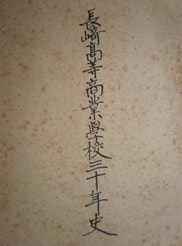 長崎髙等商業學校三十年史